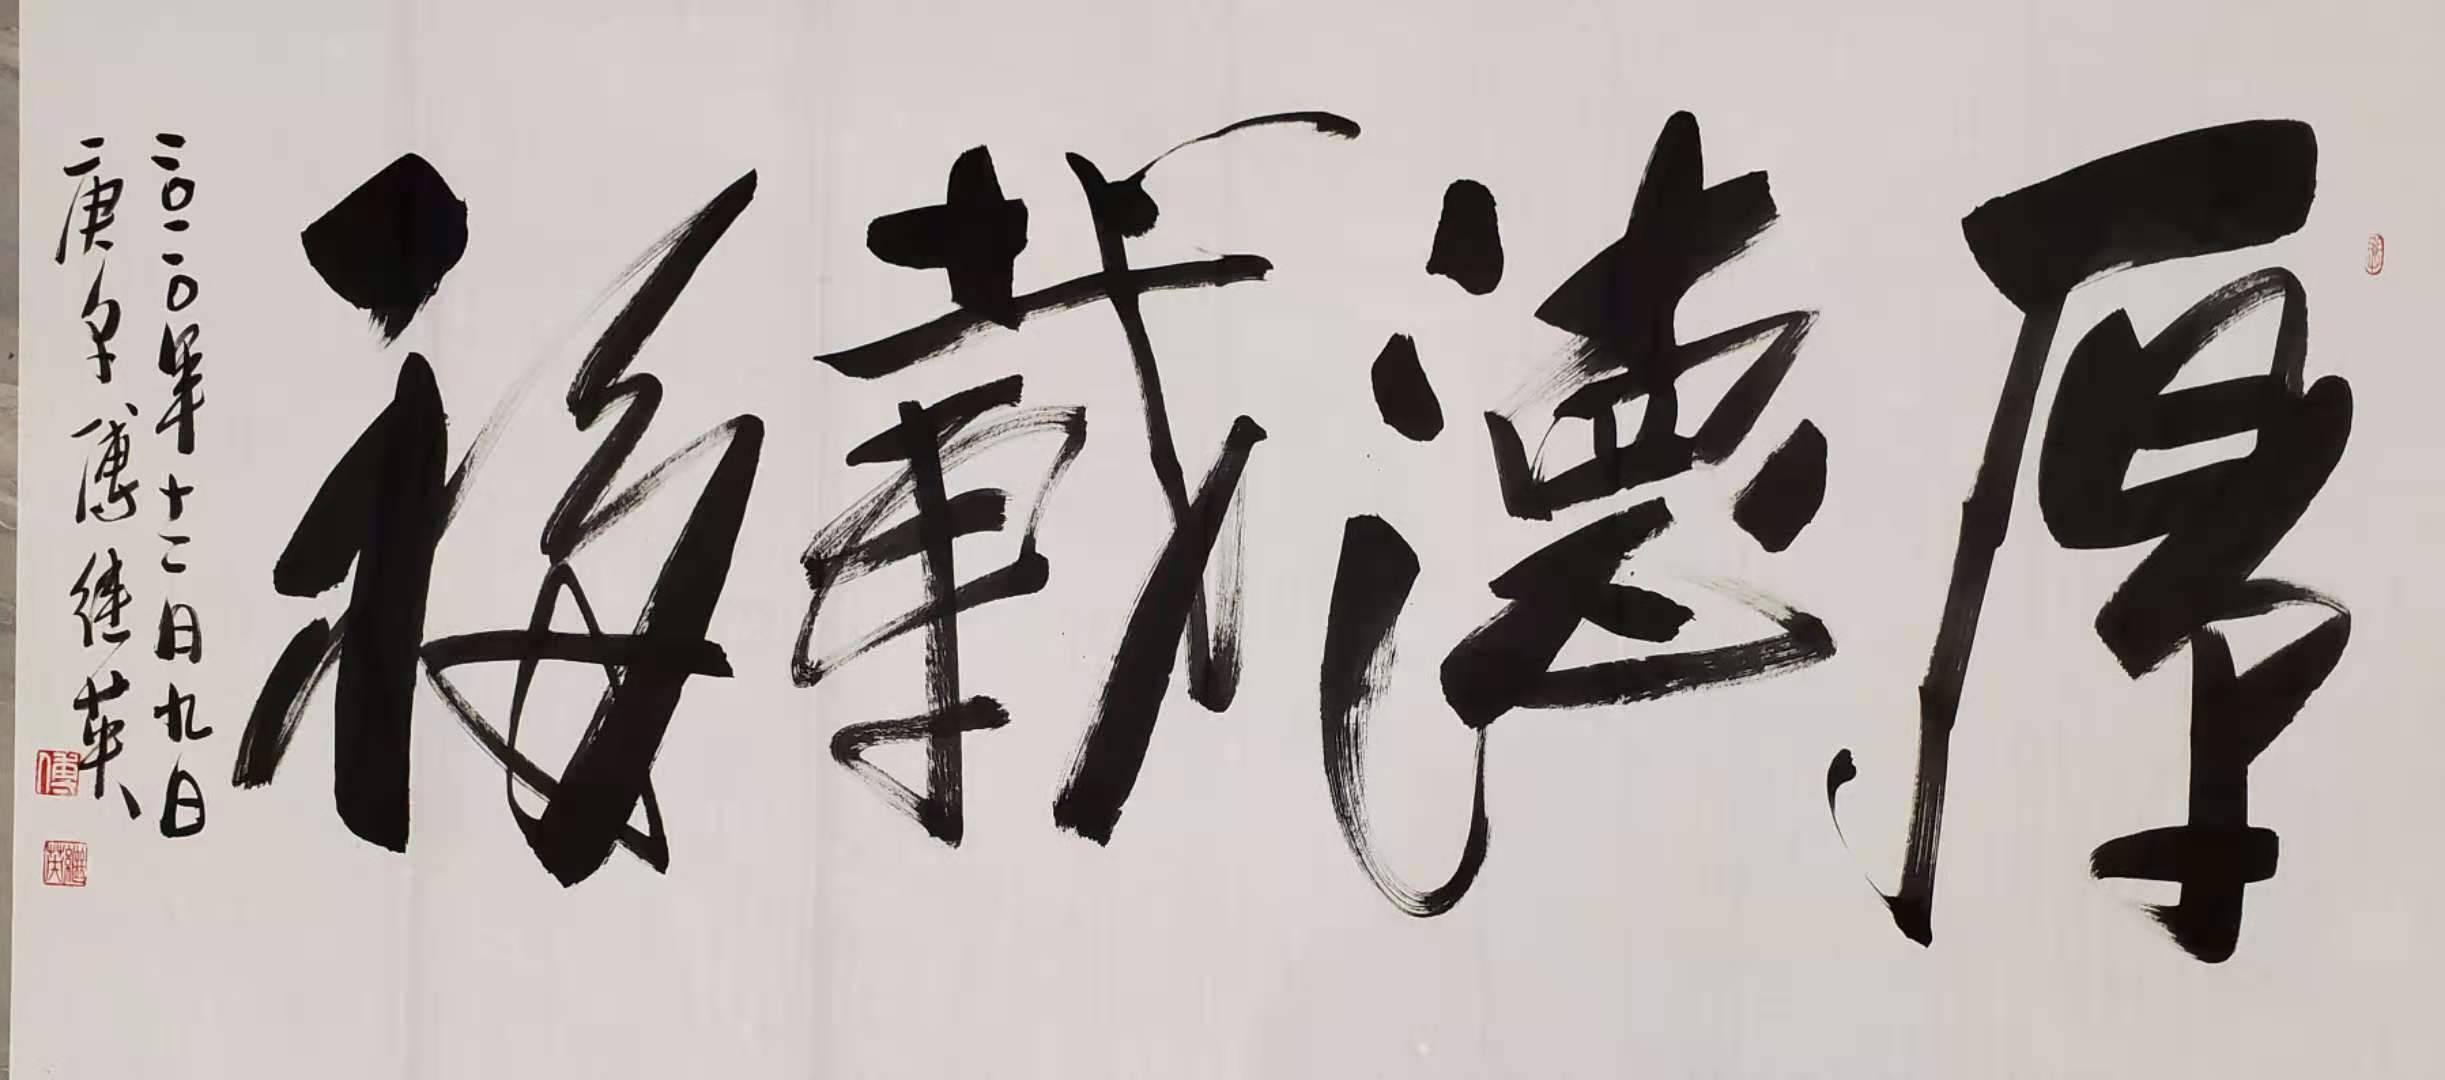 厚德載福
二〇二〇年十二月九日
庚子傅继英
傅
繼英